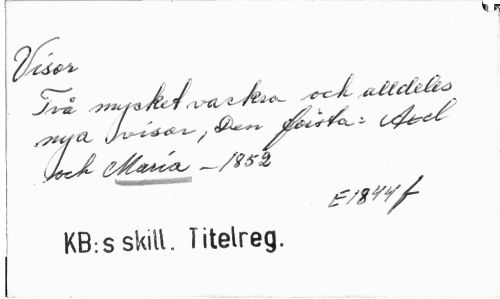 Visor
Två mycket vackra och alldeles
nya visor, Den första: Axel
och Maria – 1852
E1844f
KB:s skill. Titelreg.